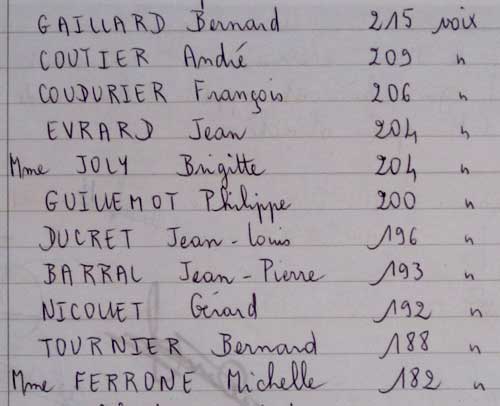 GAILLARD Bernard 215 voix
COUTIER André 209 "
COUDURIER François 206 "
EVRARD Jean 204 "
Mme JOLY Brigitte 204 "
GUILLEMOT Philippe 200 "
DUCRET Jean-Louis 196 "
BARRAL Jean-Pierre 193 "
NICOLLET Gérard 192 "
TOURNIER Bernard 188 "
Mme FERRONE Michelle 182 "